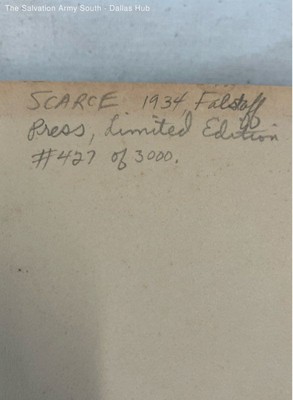 The Salvation Army South - Dallas Hub
SCARCE 1934, Falstaff
Press, Limited Edition
#427 of 3000.